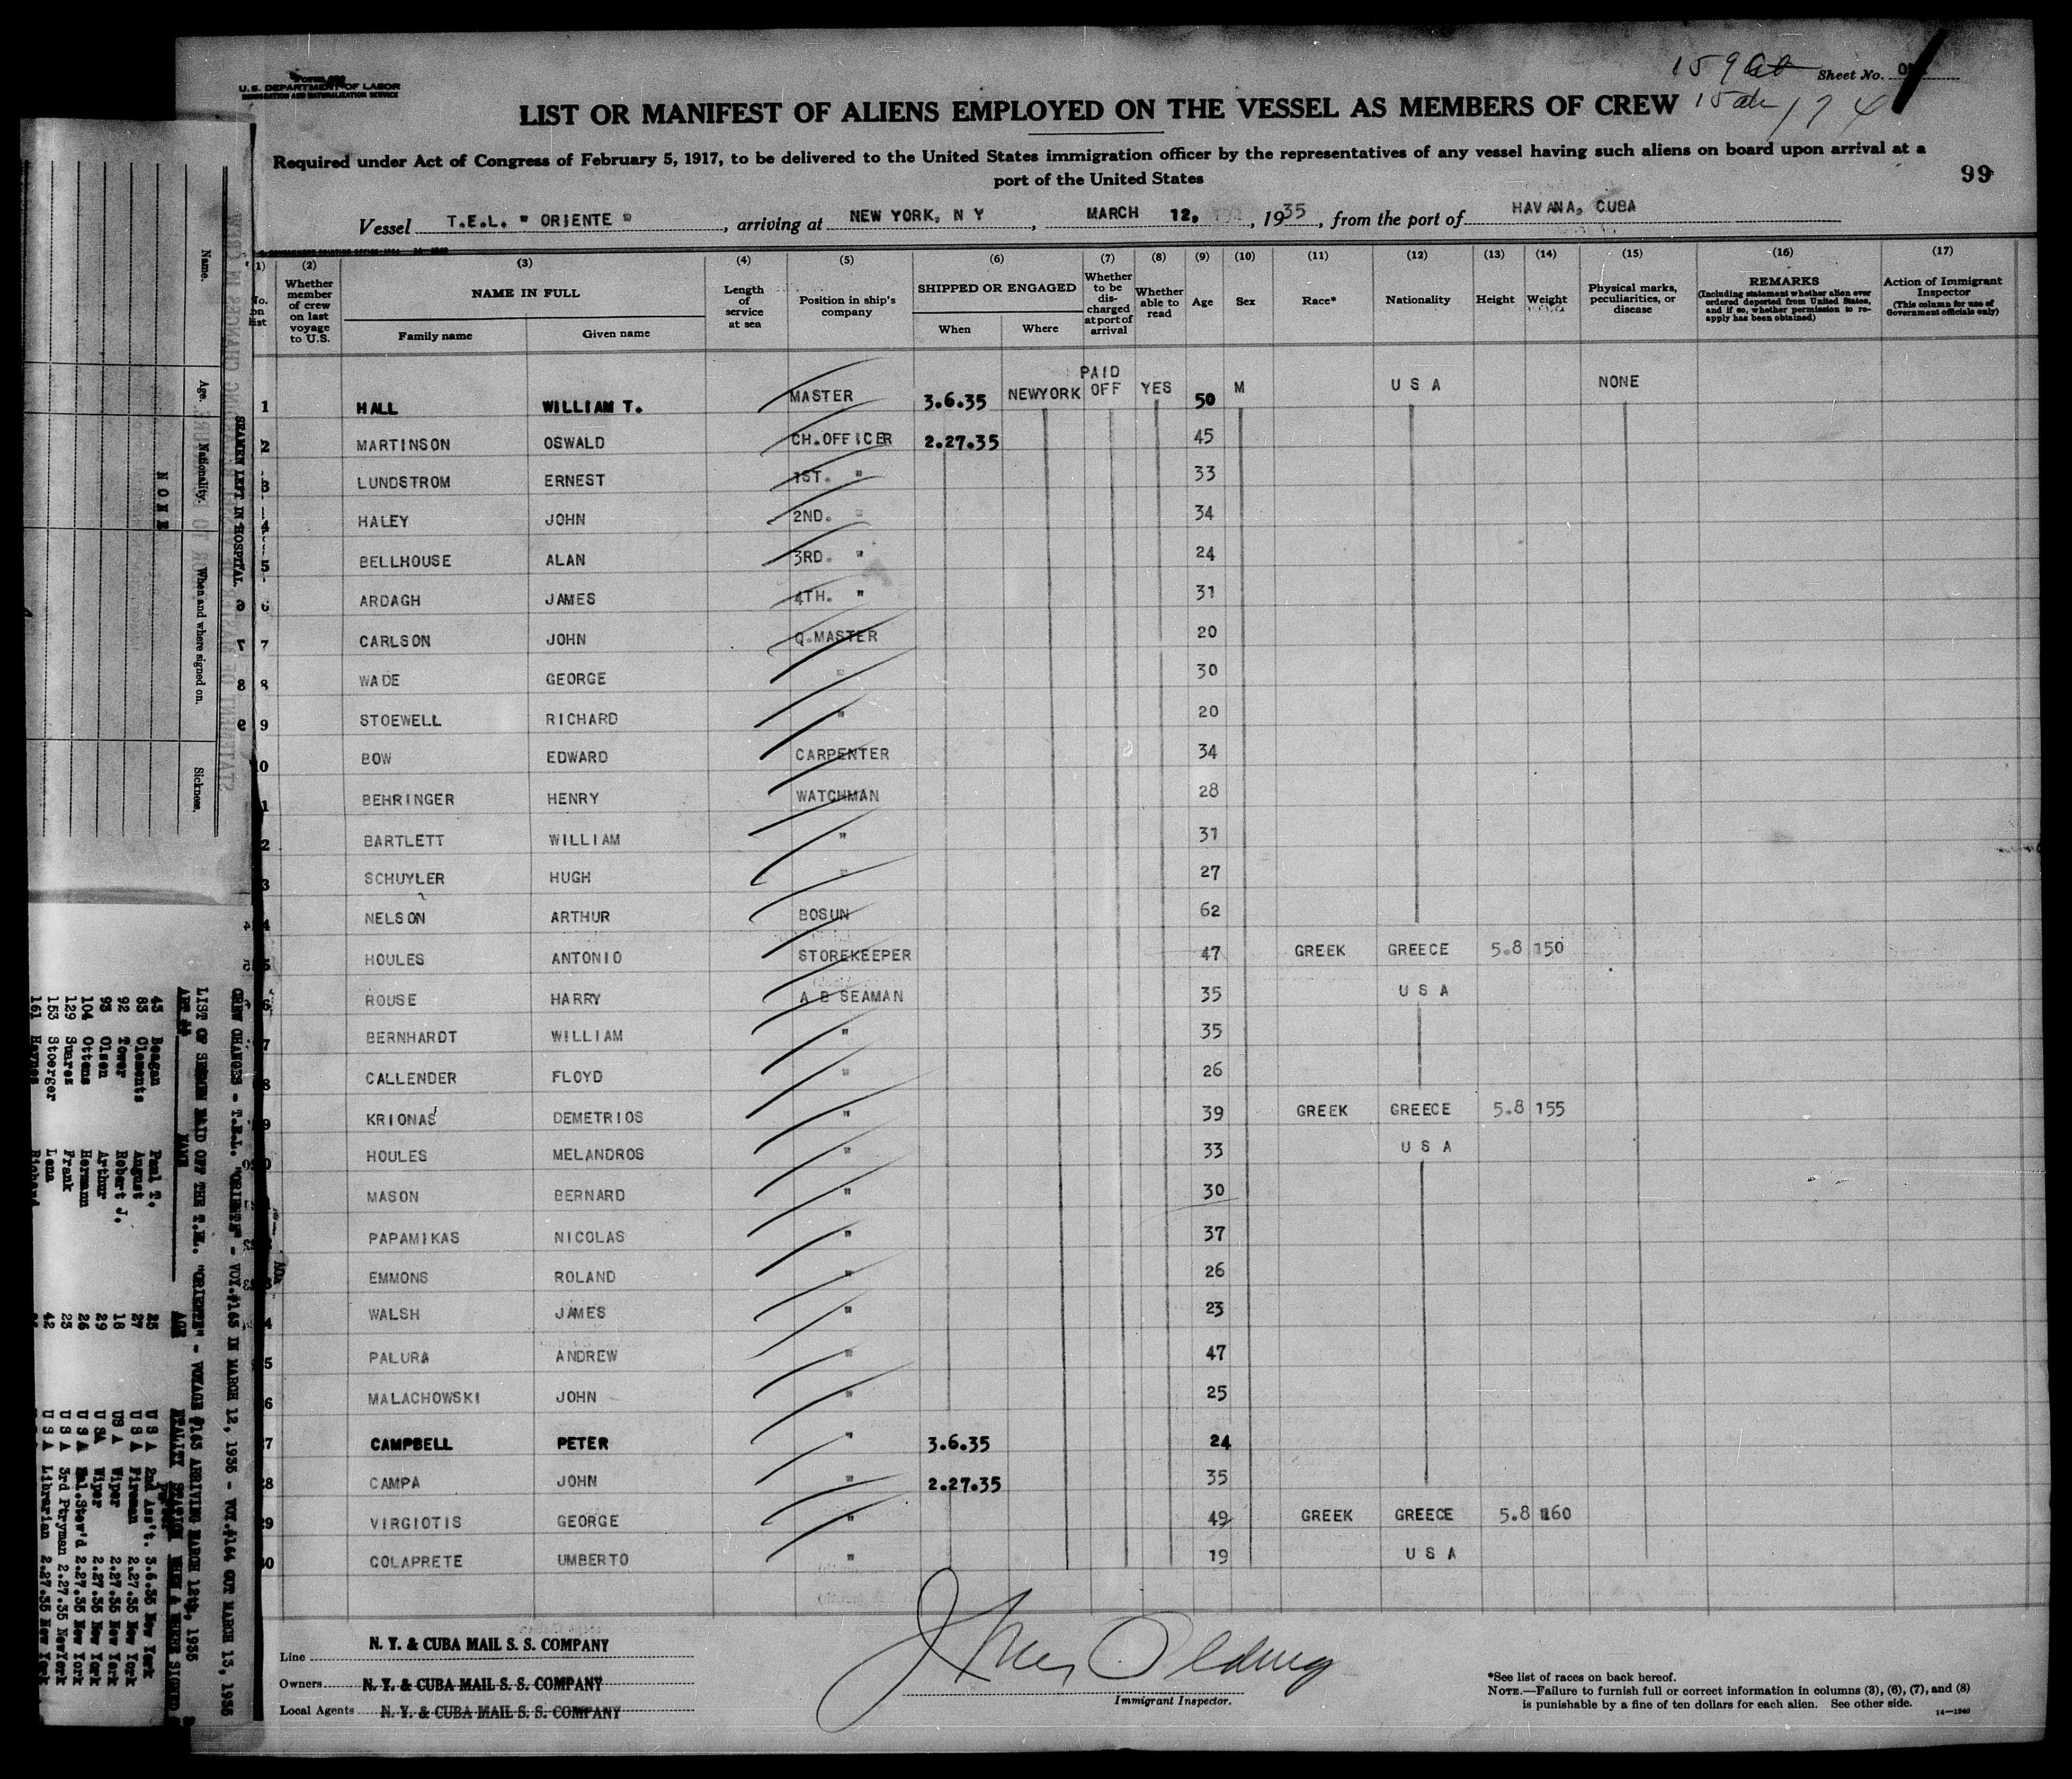 Form 689
U.S. DEPARTMENT OF LABOR
IMMIGRATION AND NATURALIZATION SERVICE
Sheet No.
LIST OR MANIFEST OF ALIENS EMPLOYED ON THE VESSEL AS MEMBERS OF CREW
Required under Act of Congress of February 5, 1917, to be delivered to the United States immigration officer by the representatives of any vessel having such aliens on board upon arrival at a
port of the United States
99
Vessel T.E.L. " ORIENTE ", arriving at NEW YORK, N Y, MARCH 12, 1935, from the port of HAVANA, CUBA
(1) (2) (3) (4) (5) (6) (7) (8) (9) (10) (11) (12) (13) (14) (15) (16) (17)
No. on list
Whether member of crew on last voyage to U.S.
NAME IN FULL
Family name Given name
Length of service at sea
Position in ship's company
SHIPPED OR ENGAGED
When Where
Whether to be discharged at port of arrival
Whether able to read
Age Sex Race* Nationality Height Weight
Physical marks, peculiarities, or disease
REMARKS
(Including statement whether alien ever ordered deported from United States, and if so, whether permission to reapply has been obtained)
Action of Immigrant Inspector
(This column for use of Government officials only)
1 HALL WILLIAM T. MASTER 3.6.35 NEWYORK PAID OFF YES 50 M U S A NONE
2 MARTINSON OSWALD CH.OFFICER 2.27.35 45
3 LUNDSTROM ERNEST 1ST. " 33
4 HALEY JOHN 2ND. " 34
5 BELLHOUSE ALAN 3RD. " 24
6 ARDAGH JAMES 4TH. " 31
7 CARLSON JOHN Q.MASTER 20
8 WADE GEORGE " 30
9 STOEWELL RICHARD " 20
0 BOW EDWARD CARPENTER 34
1 BEHRINGER HENRY WATCHMAN 28
2 BARTLETT WILLIAM " 31
3 SCHUYLER HUGH " 27
4 NELSON ARTHUR BOSUN 62
5 HOULES ANTONIO STOREKEEPER 47 GREEK GREECE 5.8 150
6 ROUSE HARRY A B SEAMAN 35 U S A
7 BERNHARDT WILLIAM " 35
8 CALLENDER FLOYD " 26
9 KRIONAS DEMETRIOS " 39 GREEK GREECE 5.8 155
0 HOULES MELANDROS " 33 U S A
MASON BERNARD " 30
PAPAMIKAS NICOLAS " 37
EMMONS ROLAND " 26
4 WALSH JAMES " 23
5 PALURA ANDREW " 47
6 MALACHOWSKI JOHN " 25
7 CAMPBELL PETER " 3.6.35 24
28 CAMPA JOHN " 2.27.35 35
29 VIRGIOTIS GEORGE " 49 GREEK GREECE 5.8 160
30 COLAPRETE UMBERTO " 19 U S A
Line N. Y. & CUBA MAIL S. S. COMPANY
Owners N. Y. & CUBA MAIL S. S. COMPANY
Local Agents N. Y. & CUBA MAIL S. S. COMPANY
Immigrant Inspector.
*See list of races on back hereof.
NOTE.—Failure to furnish full or correct information in columns (3), (6), (7), and (8)
is punishable by a fine of ten dollars for each alien. See other side.
14—1240
SEAMEN LEFT IN HOSPITAL
Name. Age. Nationality. When and where signed on. Sickness.
NONE
CREW CHANGES - T.E.L. "ORIENTE" - VOY.#163 IN MARCH 12, 1935 - VOY.#164 OUT MARCH 13, 1935
LIST OF SEAMEN PAID OFF THE T.E.L. "ORIENTE" - VOYAGE #163 ARRIVING MARCH 12th, 1935
ART ## NAME AGE
43 Reagan Paul T. 25 U S A 2nd Ass't. 3.6.35 New York
83 Clements August 27 U S A Fireman 2.27.35 New York
92 Tower Robert J. 18 US A Wiper 2.27.35 New York
93 Olsen Arthur 29 U SA Wiper 2.27.35 New York
104 Ottens Hermann 26 U S A Stew'd 2.27.35 New York
129 Suarez Frank 23 U S A 3rd Ptryman 2.27.35 NewYork
153 Stoerger Lena 42 U S A Librarian 2.27.35 New York
161 Haynes Richard